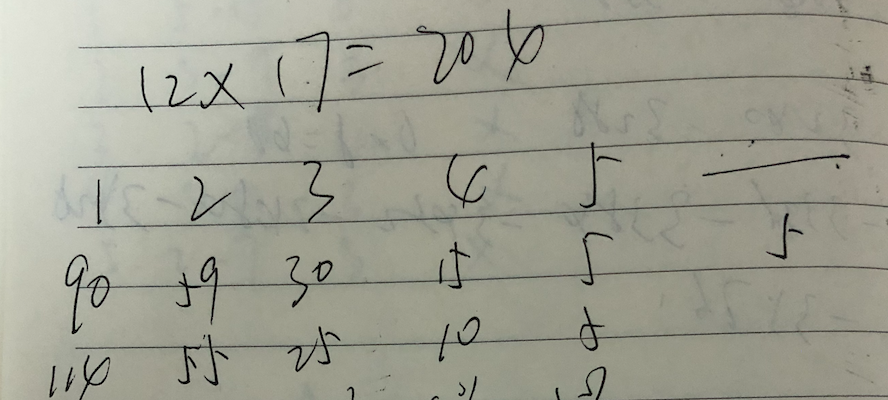 12 x 17 = 204
1 2 3 4 5 —
90 59 30 15 5 5
114 55 25 10 5